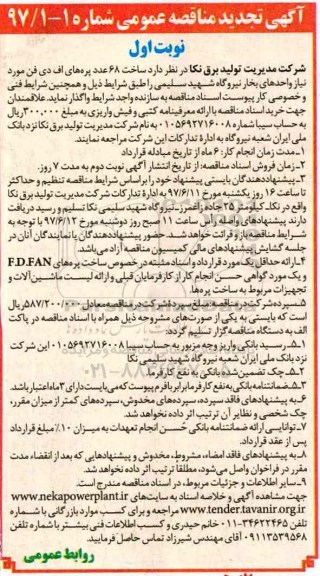 آگهی تجدید مناقصه عمومی شماره ۱-۹۷/۱
نوبت اول
شرکت مدیریت تولید برق نکا در نظر دارد ساخت ۶۸ عدد پره‌های اف دی فن مورد
نیاز واحدهای بخار نیروگاه شهید سلیمی را طبق شرایط ذیل و همچنین شرایط فنی
و خصوصی کار پیوست اسناد مناقصه به سازنده واجد شرایط واگذار نماید. علاقمندان
جهت خرید اسناد مناقصه با ارائه معرفینامه کتبی و فیش واریزی به مبلغ ۳۰۰۰۰۰ ریال
به حساب سیبا شماره ۰۱۰۵۶۹۲۷۱۶۰۰۸ به نام شرکت مدیریت تولید برق نکا نزد بانک
ملی ایران شعبه نیروگاه به اداره تدارکات این شرکت مراجعه نمایند.
۱-مدت زمان انجام کار: ۶ ماه از تاریخ مبادله قرارداد
۲-زمان فروش اسناد مناقصه: از تاریخ انتشار آگهی نوبت دوم به مدت ۷ روز.
۳-پیشنهاددهندگان بایستی پیشنهاد خود را براساس شرایط مناقصه تنظیم و حداکثر
تا ساعت ۱۶ روز یکشنبه مورخ ۹۷/۶/۱۱ به اداره تدارکات شرکت مدیریت تولید برق نکا
واقع در نکا-کیلومتر ۲۵ جاده زاغمرز-نیروگاه شهید سلیمی نکا تسلیم و رسید دریافت
دارند پیشنهادهای واصله راس ساعت ۱۱ صبح روز دوشنبه مورخ ۹۷/۶/۱۲ با توجه به
شرایط مناقصه باز و قرائت خواهد شد. حضور پیشنهاددهندگان یا نمایندگان آنان در
جلسه گشایش پیشنهادهای مالی کمیسیون مناقصه آزاد می‌باشد.
۴-ارائه حداقل یک مورد قرارداد و اسناد مثبته در خصوص ساخت پره‌های F.D.FAN
و یک مورد گواهی حسن انجام کار از کارفرمایان قبلی و ارائه لیست ماشین آلات و
تجهیزات مربوط به ساخت پره‌ها.
۵-سپرده شرکت در مناقصه: مبلغ سپرده شرکت در مناقصه معادل ۵۸۷/۲۰۰/۰۰۰ ریال
است که بایستی به یکی از صورت‌های مشروحه ذیل همراه با اسناد مناقصه در پاکت
الف به دستگاه مناقصه‌گزار تسلیم گردد:
۵-۱-رسید بانکی واریز وجه مزبور به حساب سیبا ۰۱۰۵۶۹۲۷۱۶۰۰۸ این شرکت
نزد بانک ملی ایران شعبه نیروگاه شهید سلیمی نکا
۵-۲-چک تضمین شده بانکی به نفع کارفرما
۵-۳-ضمانتنامه بانکی به نفع کارفرما برابر با فرم پیوست که می‌بایست دارای ۳ ماه اعتبار باشد.
۶-به پیشنهادهای فاقد سپرده، سپرده‌های مخدوش، سپرده‌های کمتر از میزان مقرر،
چک شخصی و نظایر آن ترتیب اثر داده نخواهد شد.
۷-توانایی ارائه ضمانتنامه بانکی حُسن انجام تعهدات به میزان ۱۰٪ مبلغ قرارداد
پس از عقد قرارداد.
۸-به پیشنهادهای فاقد امضاء، مشروط، مخدوش و پیشنهادهایی که بعد از انقضاء مدت
مقرر در فراخوان واصل می‌شود، مطلقا ترتیب اثر داده نخواهد شد.
۹-سایر اطلاعات و جزئیات مربوط، در اسناد مناقصه مندرج است.
جهت مشاهده آگهی و خلاصه اسناد به سایت‌های www.nekapowerplant.ir
www.tender.tavanir.org.ir مراجعه و برای کسب موارد بازرگانی با شماره
تلفن ۳۴۶۲۲۴۶۵-۰۱۱ خانم حیدری و کسب اطلاعات فنی بیشتر با شماره تلفن
۰۹۱۱۳۵۳۹۵۶۸ آقای مهندس شیرزاد تماس حاصل فرمایید.
روابط عمومی